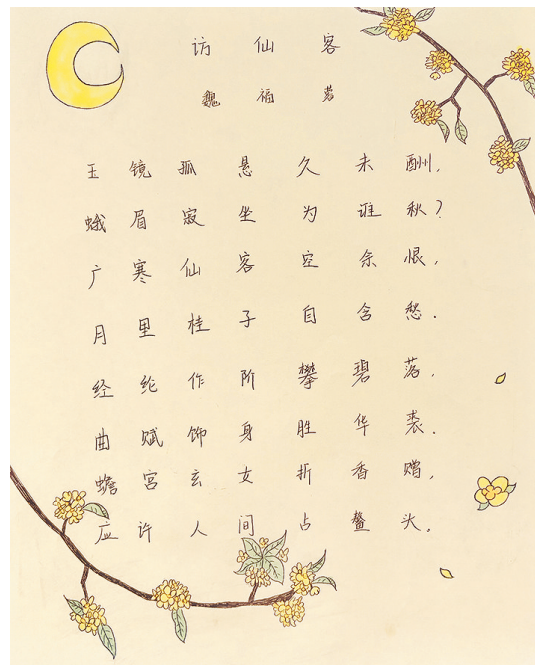 访仙客
魏福芳
玉镜孤悬久未酬,
蛾眉寂坐为谁秋?
广寒仙客空余恨,
月里桂子自含愁.
经纶作阶攀碧落,
曲赋饰身胜华裘.
蟾宫玄女折香赠,
应许人间占鳌头.